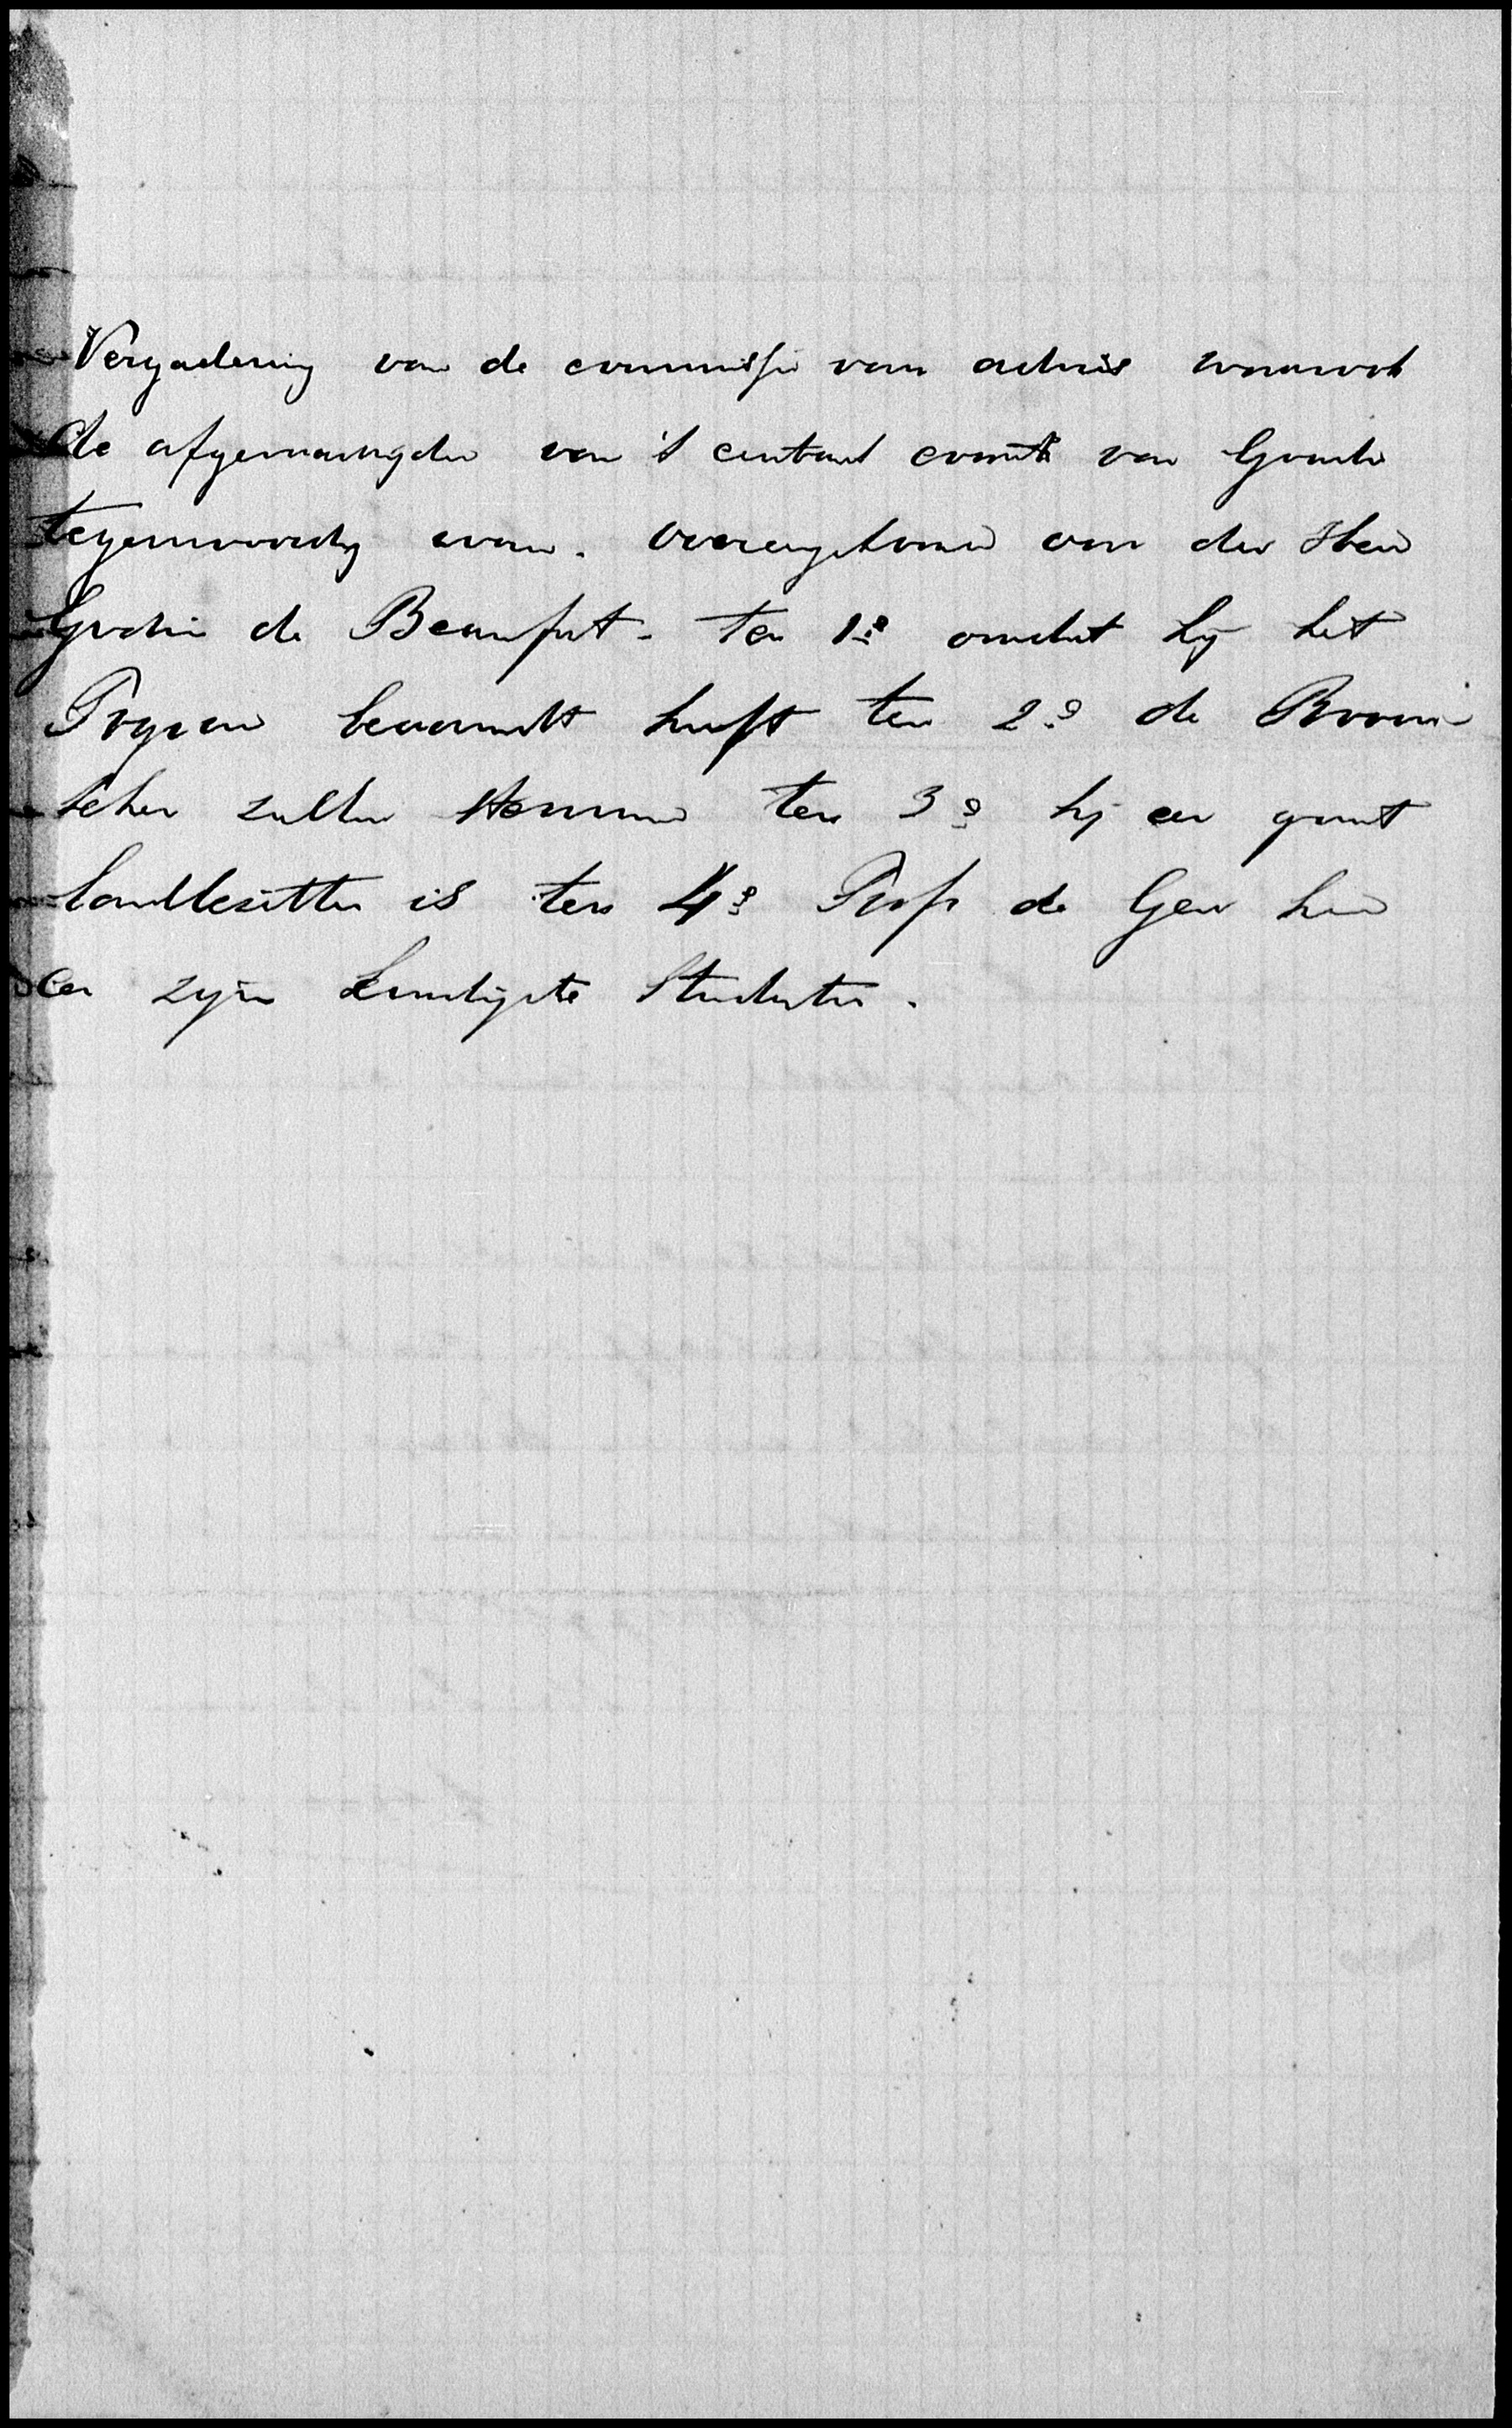 Vergadering van de commissie van advies waarvoor
de afgevaardigden van 't centraal comité van Gouda
tegenwoordig waren. overeengekomen om den Heer
de Beaufort - ten 1e omdat hij het
Program beaamt heeft ten 2e de Room
schen zullen stemmen ten 3e hij een groot
landbezitter is ten 4e Prof de Geer hem
een zijn kundigste Studenten.